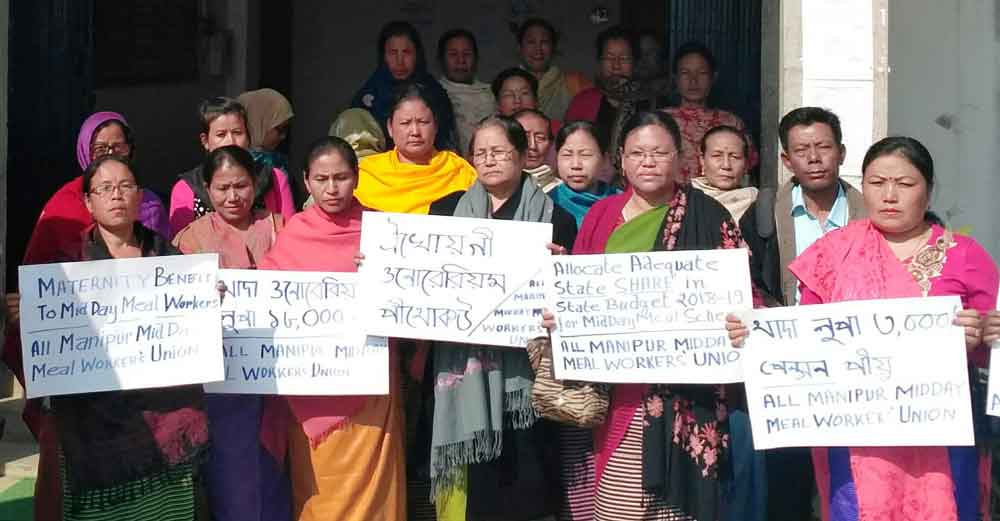 MATERNITY BENEFI
TO MID DAY MEAL WORKERS
ALL MANIPUR MID DA
MEAL WORKERS' UNION
থাদা ওনোরেরিয়
লুপা ১৮,০০০
ALL MANIPUR MIDD
MEAL WORKERS UNION
ঐখোয়গী
ওনোরেরিয়ম
পীথোকউ
ALL
MANIP
MIDDAY M
WORKERS
ALLOCATE ADEQUATE
STATE SHARE IN
STATE BUDGET 2018-19
for MIDDAY MEAL SCHE
ALL MANIPUR MIDDA
MEAL WORKERS' UNIO
থাদা লুপা ৩,০০০
পেন্সন পীয়ু
ALL MANIPUR MIDDAY
MEAL WORKERS' UNION